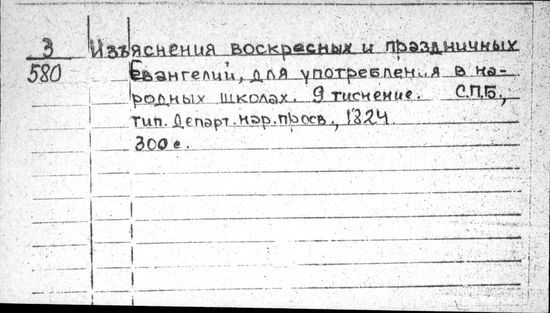 3 Изъяснения воскресных и праздничных
580 Евангелий, для употребления в на-
родных школах. 9 тиснение. С.П.Б.,
тип. Департ. нар. просв., 1824.
300 с.